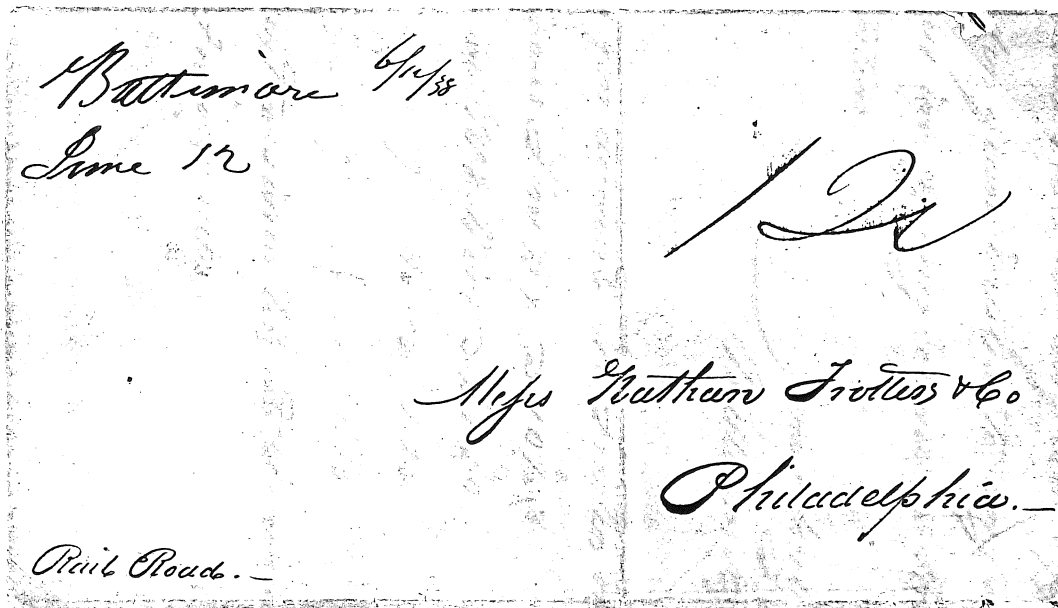 Baltimore 6/12/38
June 12
Messrs Nathan Trotters & Co
Philadelphia.—
Rail Road.—